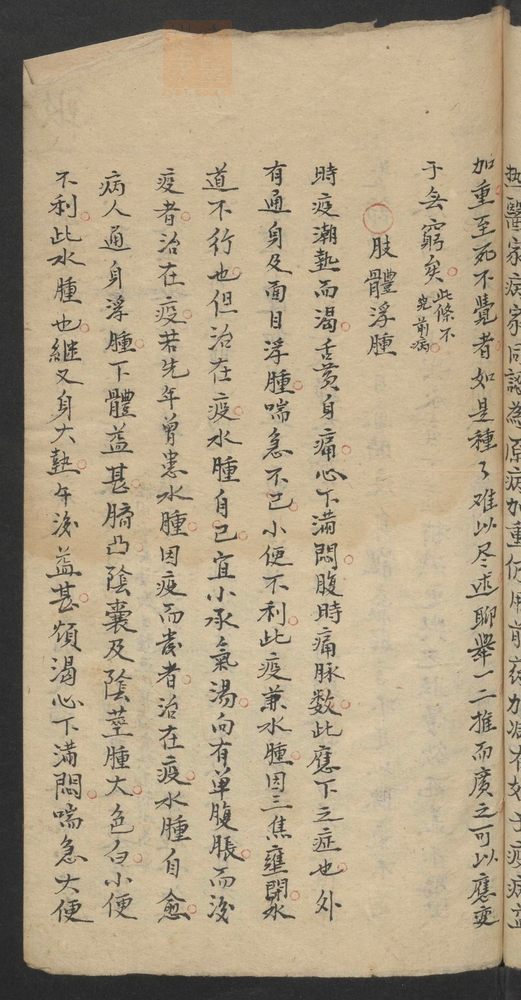 熱醫家病家同認為原病加重仍用前藥加減有妨于疫病益
加重至死不覺者如是種々难以尽述聊舉一二推而廣之可以應变
于无窮矣此條不究前病
肢體浮腫
時疫潮熱而渴舌黄身痛心下滿悶腹時痛脉数此應下之症也外
有通身及面目浮腫喘急不已小便不利此疫兼水腫因三焦壅閉水
道不行也但治在疫水腫自已宜小承氣湯向有单腹脹而後
疫者治在疫若先年曾患水腫因疫而發者治在疫水腫自愈
病人通身浮腫下體益甚臍凸陰囊及陰莖腫大色白小便
不利此水腫也継又身大熱午後益甚煩渴心下滿悶喘急大便